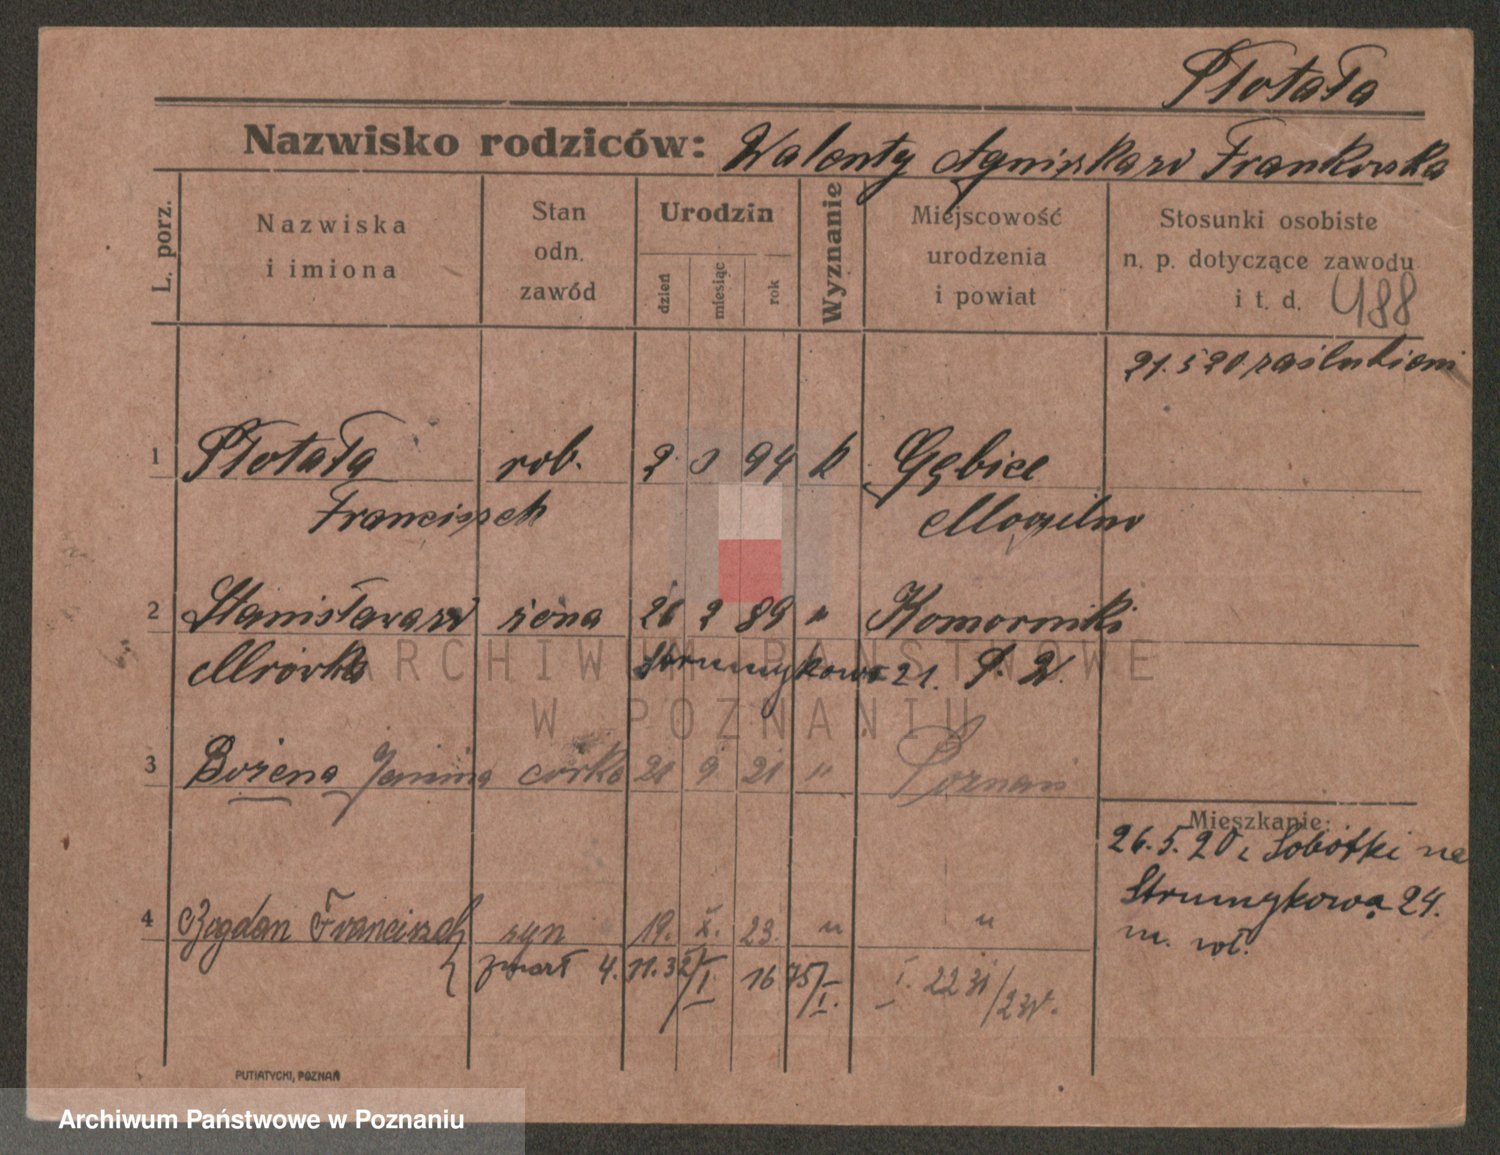 Płotała
Nazwisko rodziców: Walenty Agnieszka zd Frankowska
L. porz.
Nazwiska i imiona
Stan odn. zawód
Urodzin
dzień miesiąc rok
Wyznanie
Miejscowość urodzenia i powiat
Stosunki osobiste n. p. dotyczące zawodu i t. d. 488
21.5 20 zaślubieni
1 Płotała rob. 2 94 k Gębice
Franciszek Mogilno
2 Stanisława zd żona 26 2 89 " Komorniki
Mrówka Strumykowa 21. P. W.
3 Bożena Janina córka 21 9 21 " Poznań
Mieszkanie:
26.5.20 z Sobótki na
Strumykowa 24.
4 Bogdan Franciszek syn 19. X. 23. " "
m. wł.
zmarł 4. 11. 3
PUTIATYCKI, POZNAŃ
ARCHIWUM PAŃSTWOWE
W POZNANIU
Archiwum Państwowe w Poznaniu